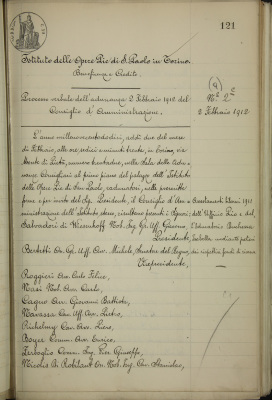 121
Istituto delle Opere Pie di S. Paolo in Torino.
Beneficenza e Credito.
Processo verbale dell'adunanza 2 Febbraio 1912 del
Consiglio di Amministrazione.
(a)
N.º 2º
2 Febbraio 1912
L'anno millenovecentododici, addì due del mese
di Febbraio, alle ore sedici e minuti trenta, in Torino, via
Monte di Pietà, numero trentadue, nella Sala delle Adu-
nanze Consigliari al primo piano del palazzo dell'Istituto
delle Opere Pie di San Paolo, radunatosi, nelle prescritte
forme e per invito del Sig. Presidente, il Consiglio di Am-
ministrazione dell'Istituto stesso, risultano presenti i Signori:
Salvadori di Wiesenhoff Nob. Ing. Gr. Uff. Giacomo,
Presidente,
Bertetti On. Gr. Uff. Avv. Michele, Senatore del Regno,
Vicepresidente,
Ruggieri Avv. Carlo Felice,
Nasi Nob. Avv. Carlo,
Cagno Avv. Giovanni Battista,
Navassa Cav. Uff. Avv. Pietro,
Pinchetti Cav. Avv. Livio,
Boyer Comm. Avv. Enrico,
Zerboglio Comm. Ing. Pier Giuseppe,
Nicolis di Robilant On. Nob. Ing. Cav. Stanislao,